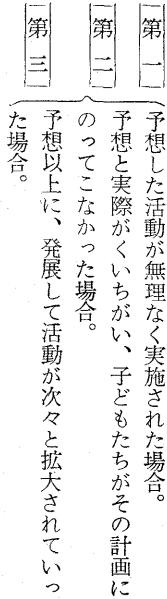 第一
予想した活動が無理なく実施された場合。
第二
予想と実際がくいちがい、子どもたちがその計画に
のってこなかった場合。
第三
予想以上に、発展して活動が次々と拡大されていっ
た場合。